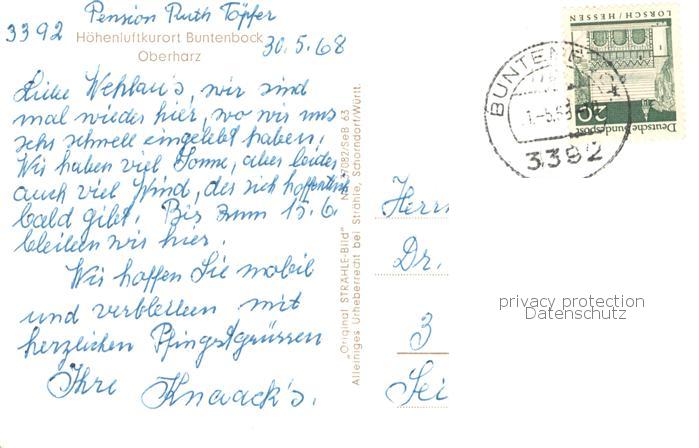 Pension Ruth Töpfer
3392
Höhenluftkurort Buntenbock
Oberharz
30.5.68
Liebe Wehlau's, wir sind
mal wieder hier, wo wir uns
sehr schnell eingelebt haben.
Wir haben viel Sonne, aber leider
auch viel Wind, der sich hoffentlich
bald gibt. Bis zum 15.6.
bleiben wir hier.
Wir hoffen Sie mobil
und verbleiben mit
herzlichen Pfingstgrüssen
Ihre Knaack's.
"Original STRÄHLE-Bild"
Alleiniges Urheberrecht bei Strähle, Schorndorf/Württ.
Herrn
Dr.
3
LORSCH/HESSEN
20
Deutsche Bundespost
3392
privacy protection
Datenschutz